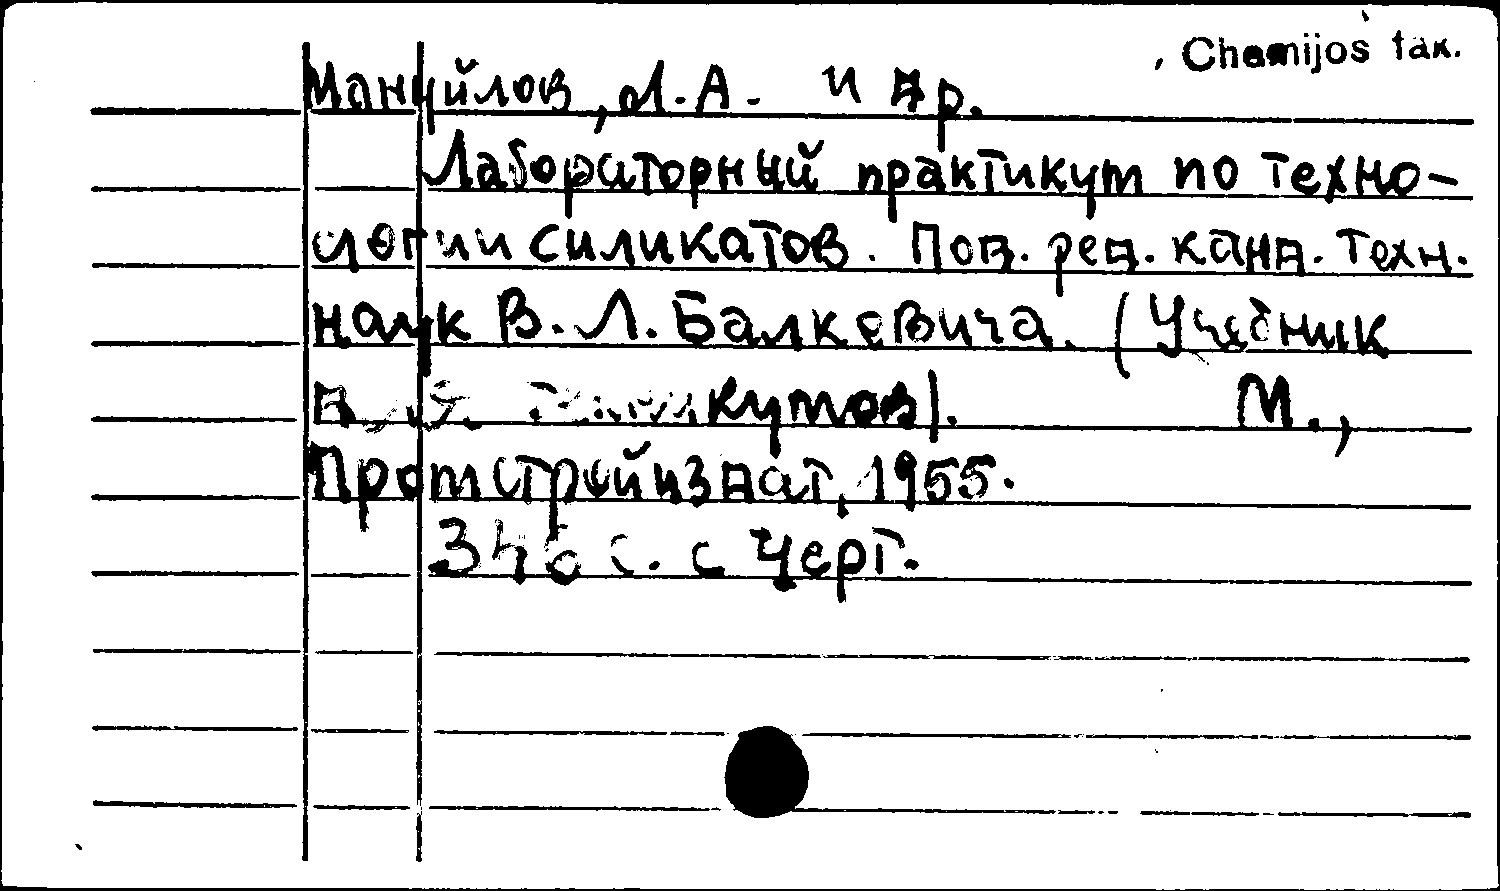 Chemijos fak.
Мануйлов, Л.А. и др.
Лабораторный практикум по техно-
логии силикатов. Под. ред. канд. техн.
наук В.Л. Балкевича. (Учебник
для техникумов).      М.,
Промстройиздат, 1955.
346 с. с черт.